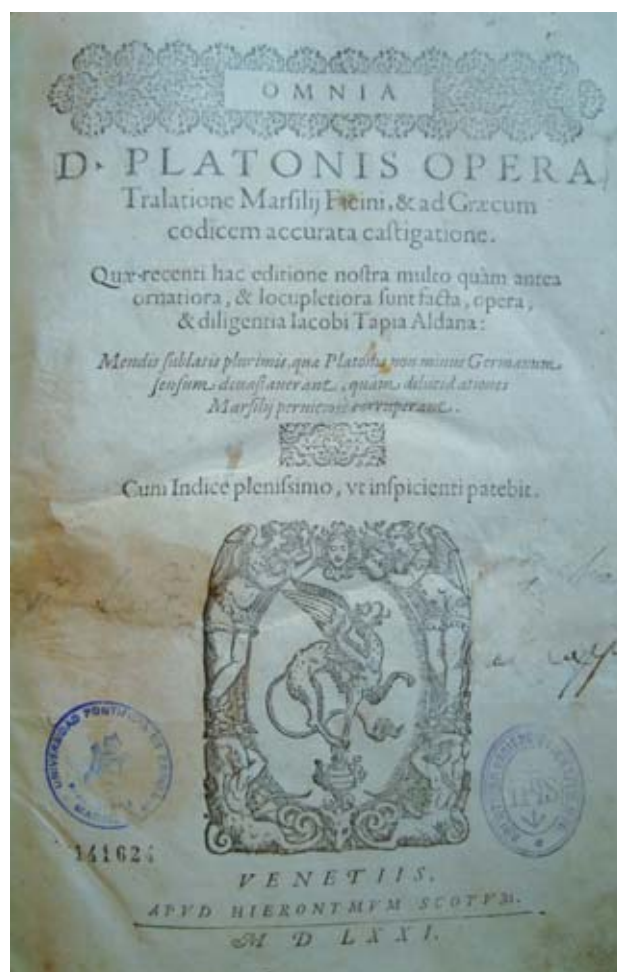 OMNIA
D. PLATONIS OPERA
Tralatione Marsilij Ficini, & ad Græcum
codicem accurata castigatione.
Quæ recenti hac editione nostra multo quàm antea
ornatiora, & locupletiora sunt facta, opera,
& diligentia Iacobi Tapia Aldana:
Mendis sublatis plurimis, quæ Platonis non minus Germanum
sensum devastaverant, quam dilucidationes
Marsilij perniciosè corruperant.
Cum Indice plenissimo, vt inspicienti patebit.
UNIVERSIDAD PONTIFICIA
MADRID
IHS
141624
VENETIIS,
APVD HIERONYMVM SCOTVM.
M D LXXI.